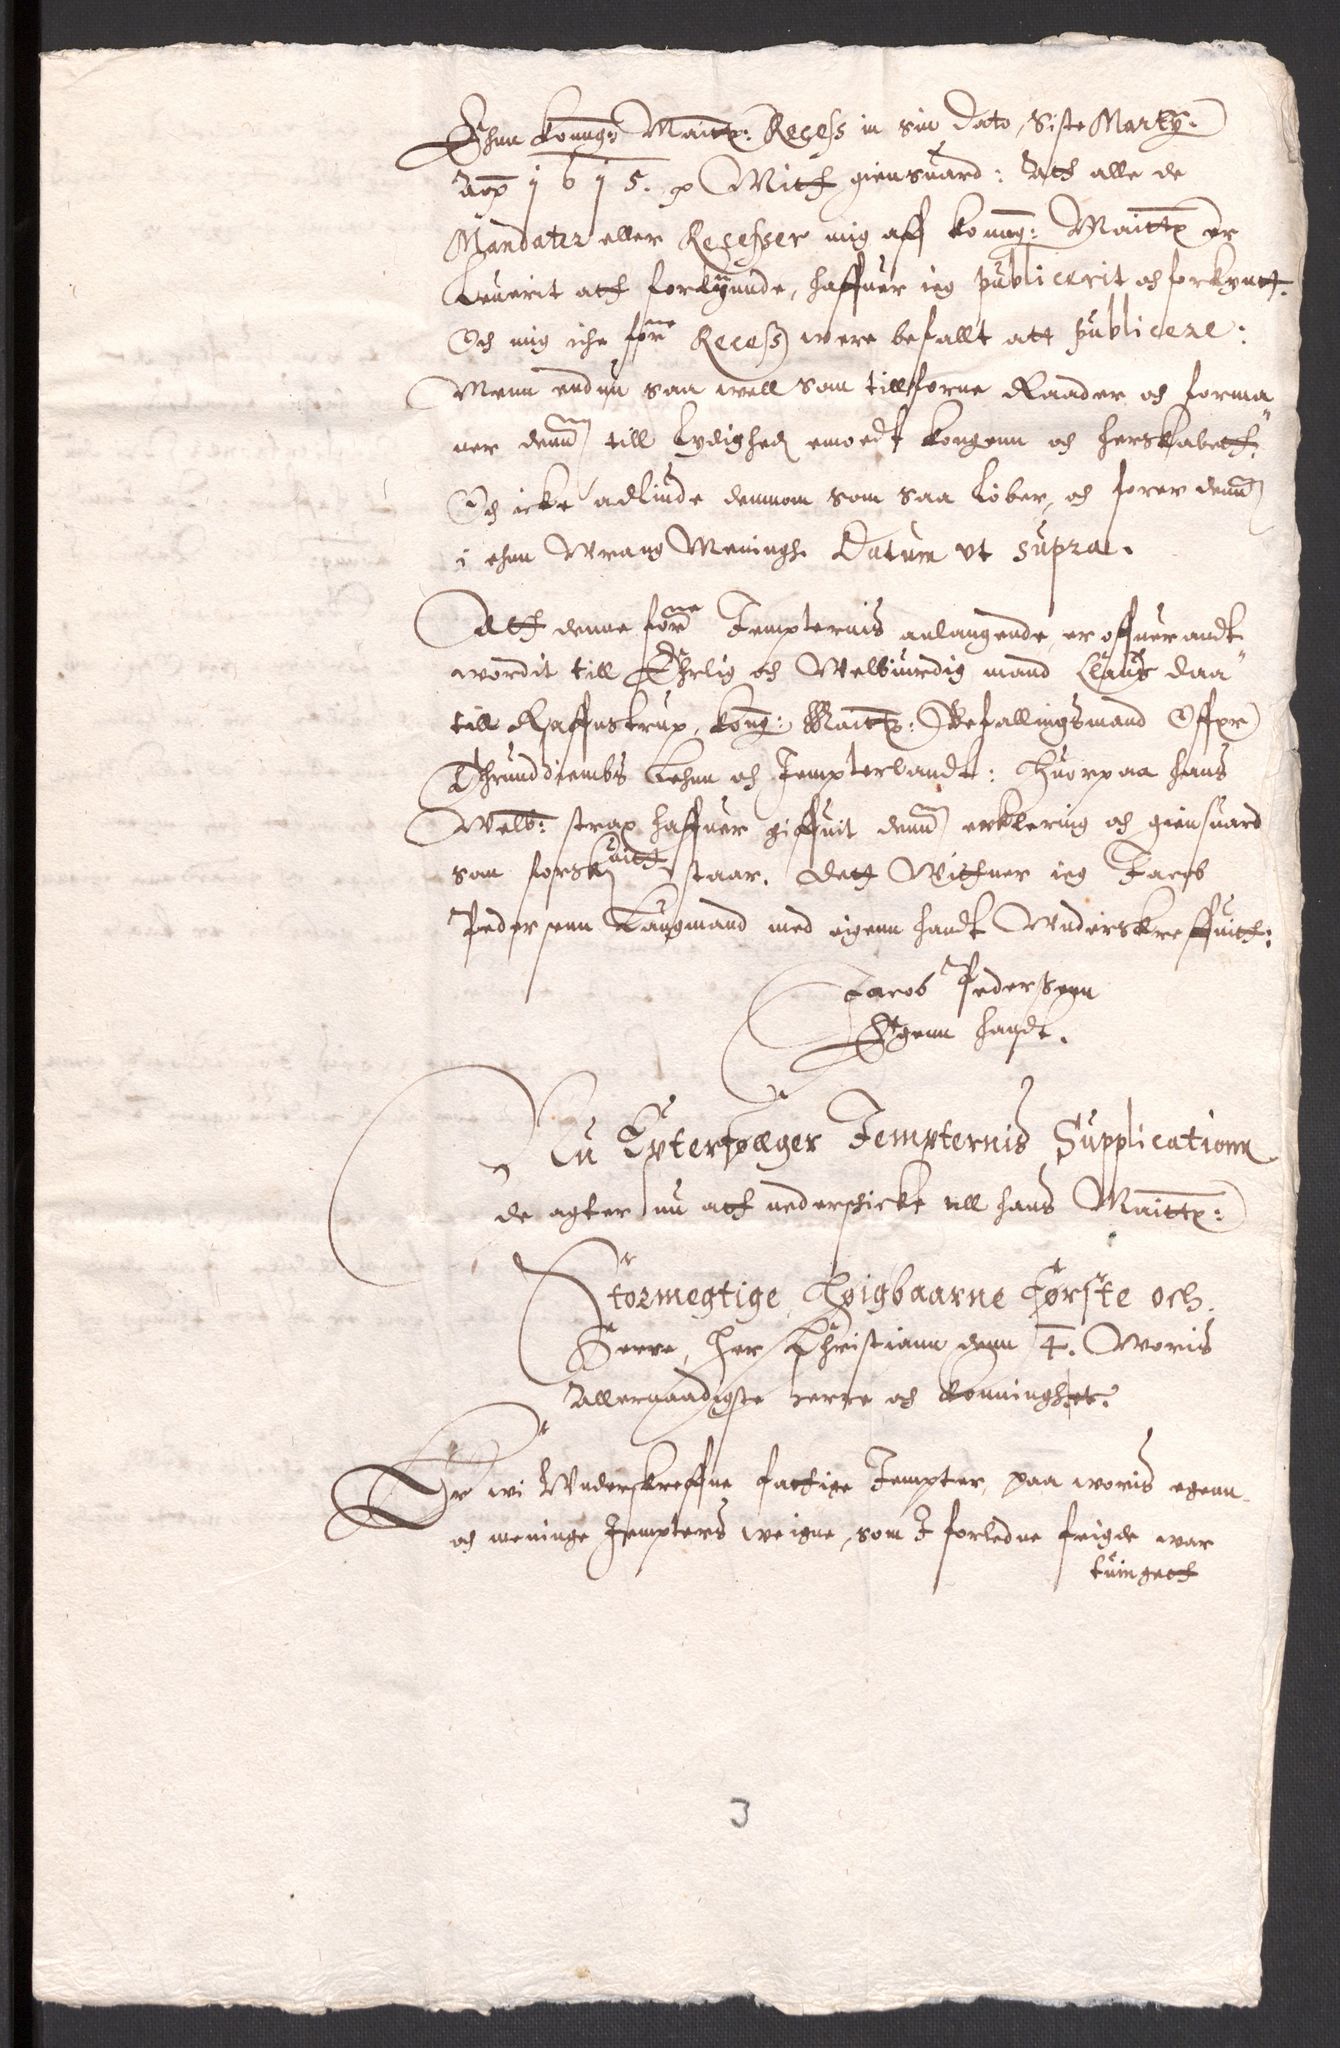 Ehnn konng: Maittz: Recess in sin dato, Siste Marty:
Ao 1615. p Mitt giensuard: Att alle de
Mandater eller Recesser mig aff konng: Maittz er
Leuerit att forkynde, haffuer ieg publicerit och forkyntt.
Och mig iche forne Recess were befallt att publicere:
Menn endnu saa well som tillforne Raader och forma
ner dennom till Lydighed emoedt kongenn och herskabett.
Och icke adlinde dennom som saa Löber, och forer dennom
i ehnn Wrang Meningh. Datum ut supra.
Att denne forne Jempternis anlangende, er offuerandt
wordit till Ehrlig och Welbiurdig mand Claus daa
till Raffnstrup, kong: Maittz: Befallingsmand Offuer
Thrunddiembs Lehnn och Jempterlandt: Huorpaa hans
Welb: strax haffuer giffuit denne erklering och giensuard
som forskreffuitt staar. Dett Withner ieg Jacob
Pedersenn Laugmand med eigenn handt Wnderskreffuitt:
Jacob Pedersenn
Egenn handt.
Nu Epterfölger Jempternis Supplicationn
de agter nu att nederschicke till hans Maittz:
Stormegtige Höigbaarne Förste och
Herre, Her Christiann denn 4. Woris
Allernaadigste herre och konningh etc.
Er wi Wnderskreffne fattige Jempter, paa woris egenn
och meninge Jempters weigne, som J forledne feigde war
tuingett
3